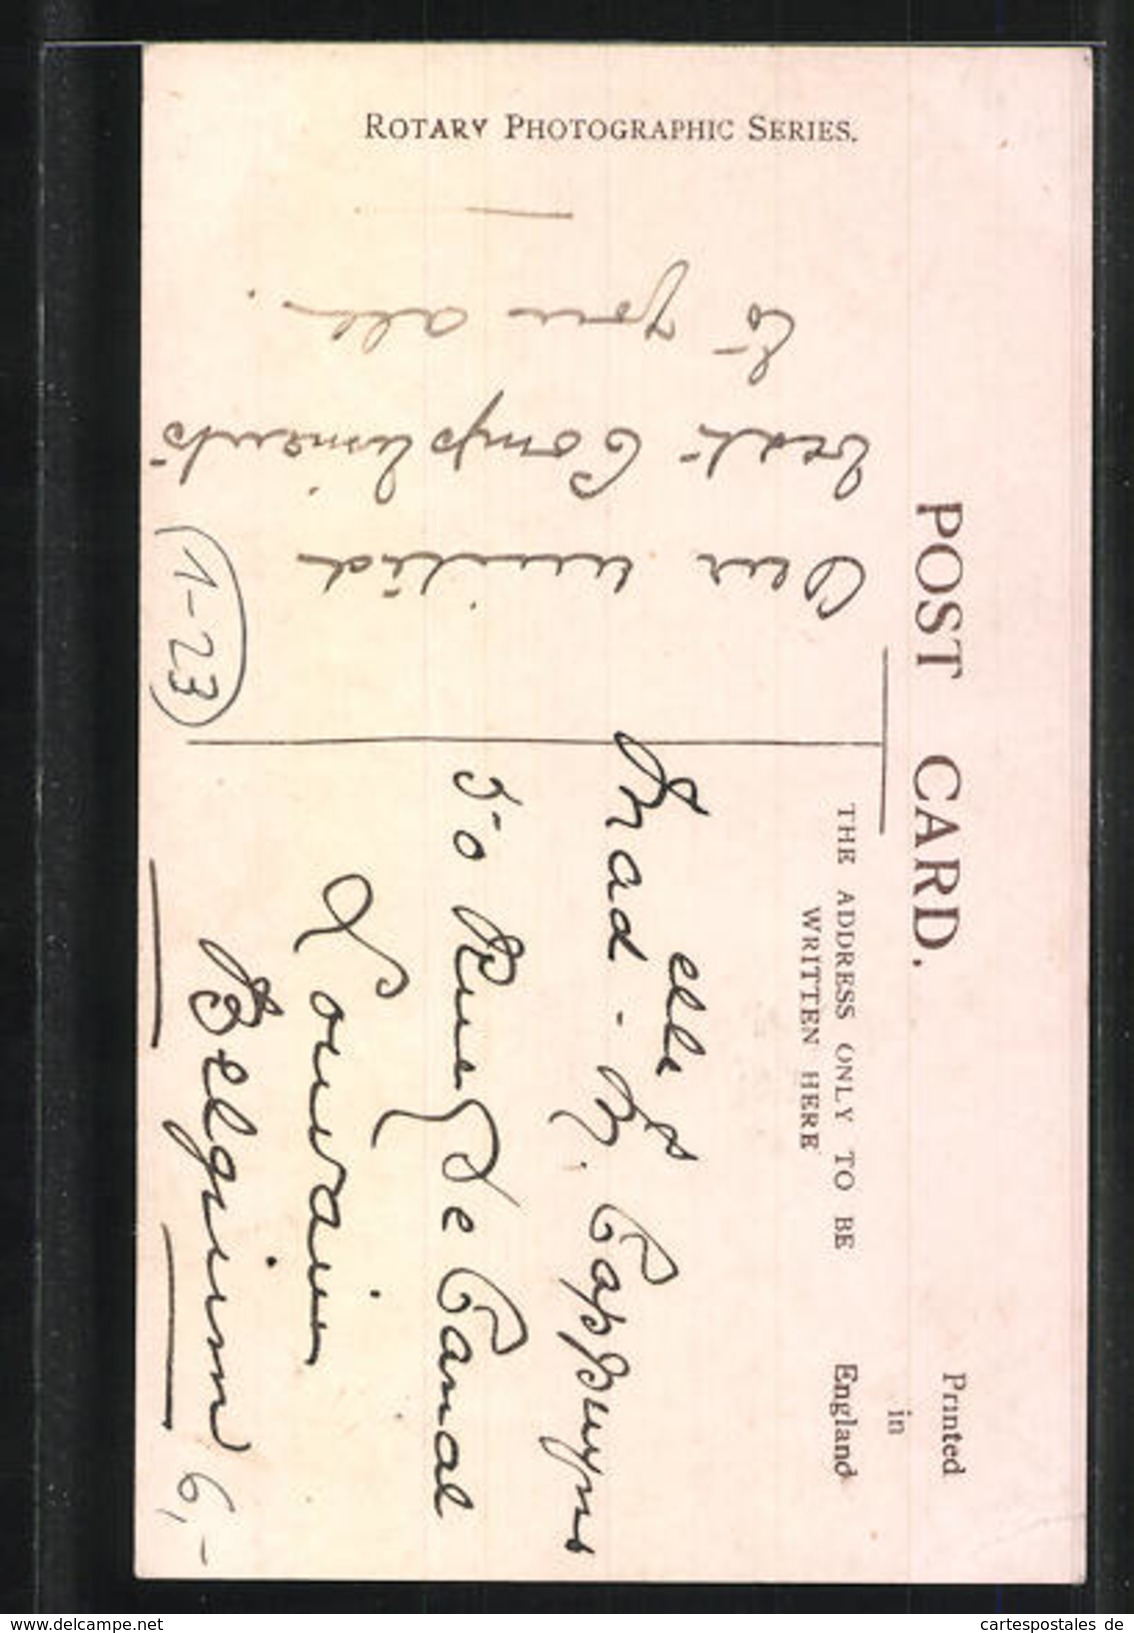 ROTARY PHOTOGRAPHIC SERIES.
POST CARD.
Printed
in
England
THE ADDRESS ONLY TO BE
WRITTEN HERE
Our united
best Compliments
to you all.
1-23
elle
Mad - M. Cappuyns
50 Rue de Canal
Louvain
Belgium
6,-
www.delcampe.net
cartespostales de